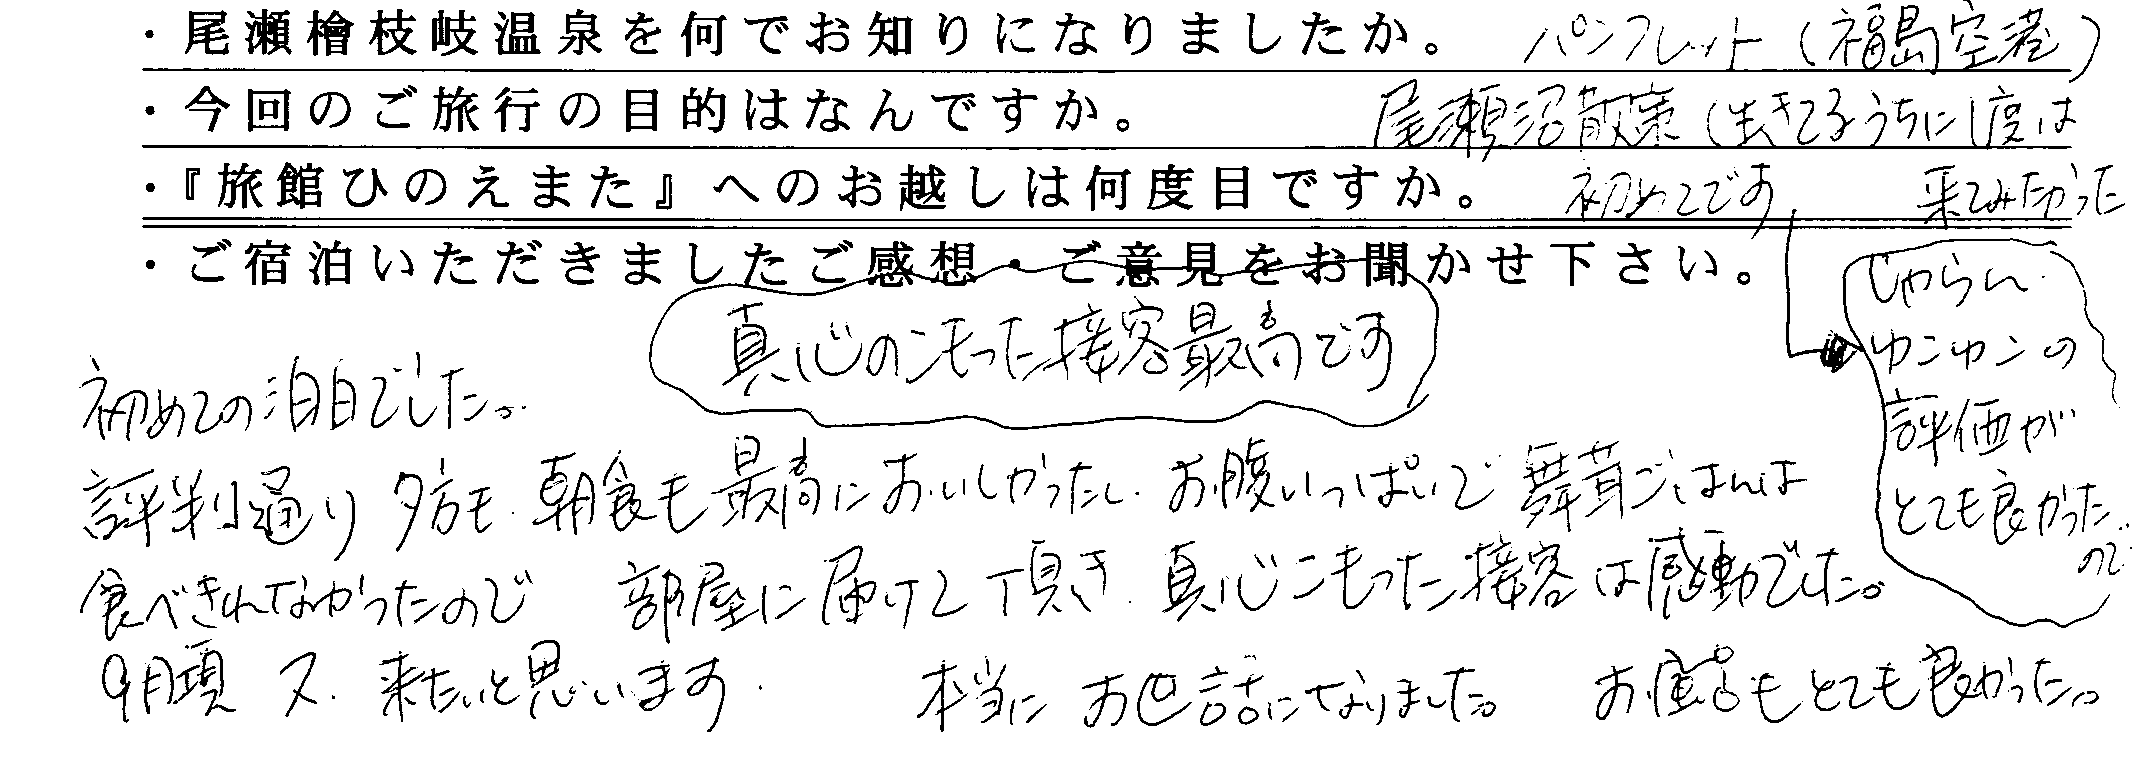 ・尾瀬檜枝岐温泉を何でお知りになりましたか。 パンフレット（福島空港）
・今回のご旅行の目的はなんですか。 尾瀬沼散策（生きてるうちに1度は
来てみたかった
・『旅館ひのえまた』へのお越しは何度目ですか。 初めてです
じゃらん.
ゆこゆこの
評価が
とても良かった
ので
・ご宿泊いただきましたご感想・ご意見をお聞かせ下さい。
真心のこもった接客最高です
初めての泊でした。
評判通り 夕方も.朝食も最高においしかったし.お腹いっぱいで舞茸ごはんは
食べきれなかったので 部屋に届けて頂き.真心こもった接客は感動でした。
9月頃 又.来たいと思います. 本当にお世話になりました。 お風呂もとても良かった。